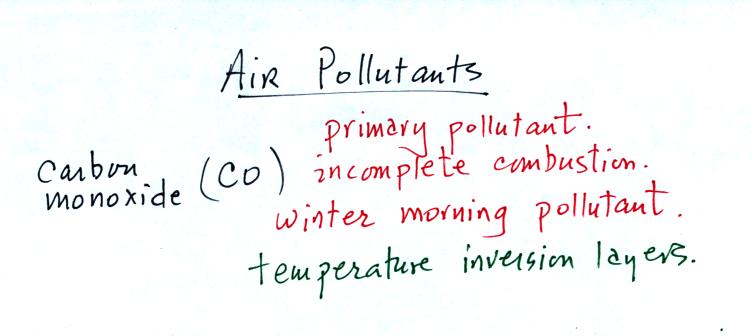 Air Pollutants
carbon monoxide (CO)
primary pollutant.
incomplete combustion.
winter morning pollutant.
temperature inversion layers.